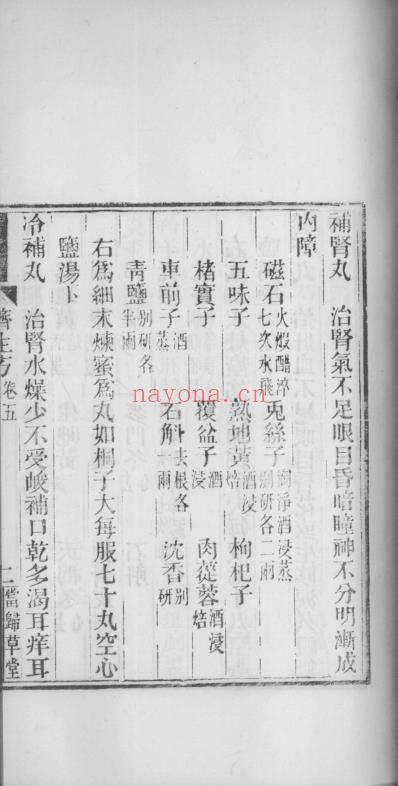 補腎丸　治腎氣不足眼目昏暗瞳神不分明漸成
內障
磁石火煅醋淬七次水飛　兎絲子淘淨酒浸蒸別研各二兩
五味子　熟地黃酒浸焙　枸杞子
楮實子　覆盆子酒浸　肉蓯蓉酒浸焙
車前子酒蒸　石斛去根各一兩　沈香別研
青鹽別研各半兩
右爲細末煉蜜爲丸如桐子大每服七十丸空心
鹽湯下
冷補丸　治腎水燥少不受峻補口乾多渴耳痒耳
濟生方　卷五　二　當歸草堂
nayona.cn